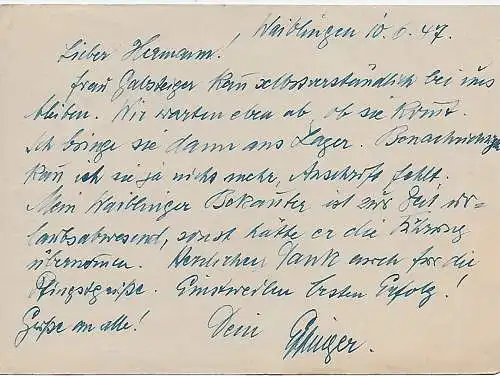 Waiblingen 10.6.47.
Lieber Hermann!
Frau Galsteiger kann selbstverständlich bei uns
bleiben. Wir warten eben ab, ob sie kommt.
Ich bringe sie dann ans Lager. Benachrichtigen
kann ich sie ja nicht mehr, Anschrift fehlt.
Mein Waiblinger Bekannter ist zur Zeit ur-
laubsabwesend, sonst hätte er die Führung
übernommen. Herzlichen Dank auch für die
Pfingstgrüße. Einstweilen besten Erfolg!
Grüße an alle! Dein